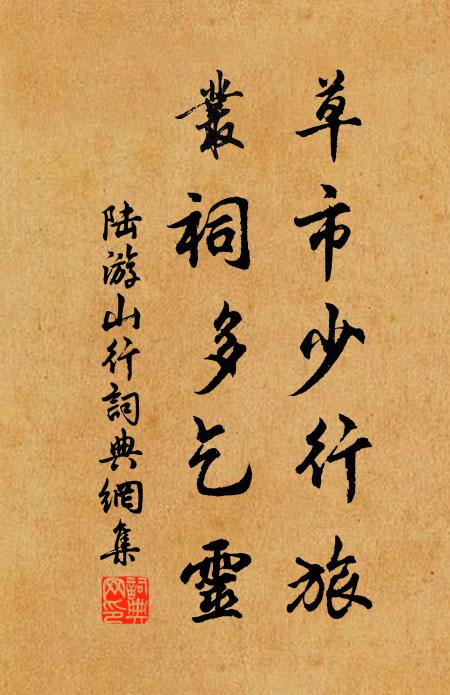 草市少行旅
叢祠多乞靈
陆游山行詞典網集
詞典网印